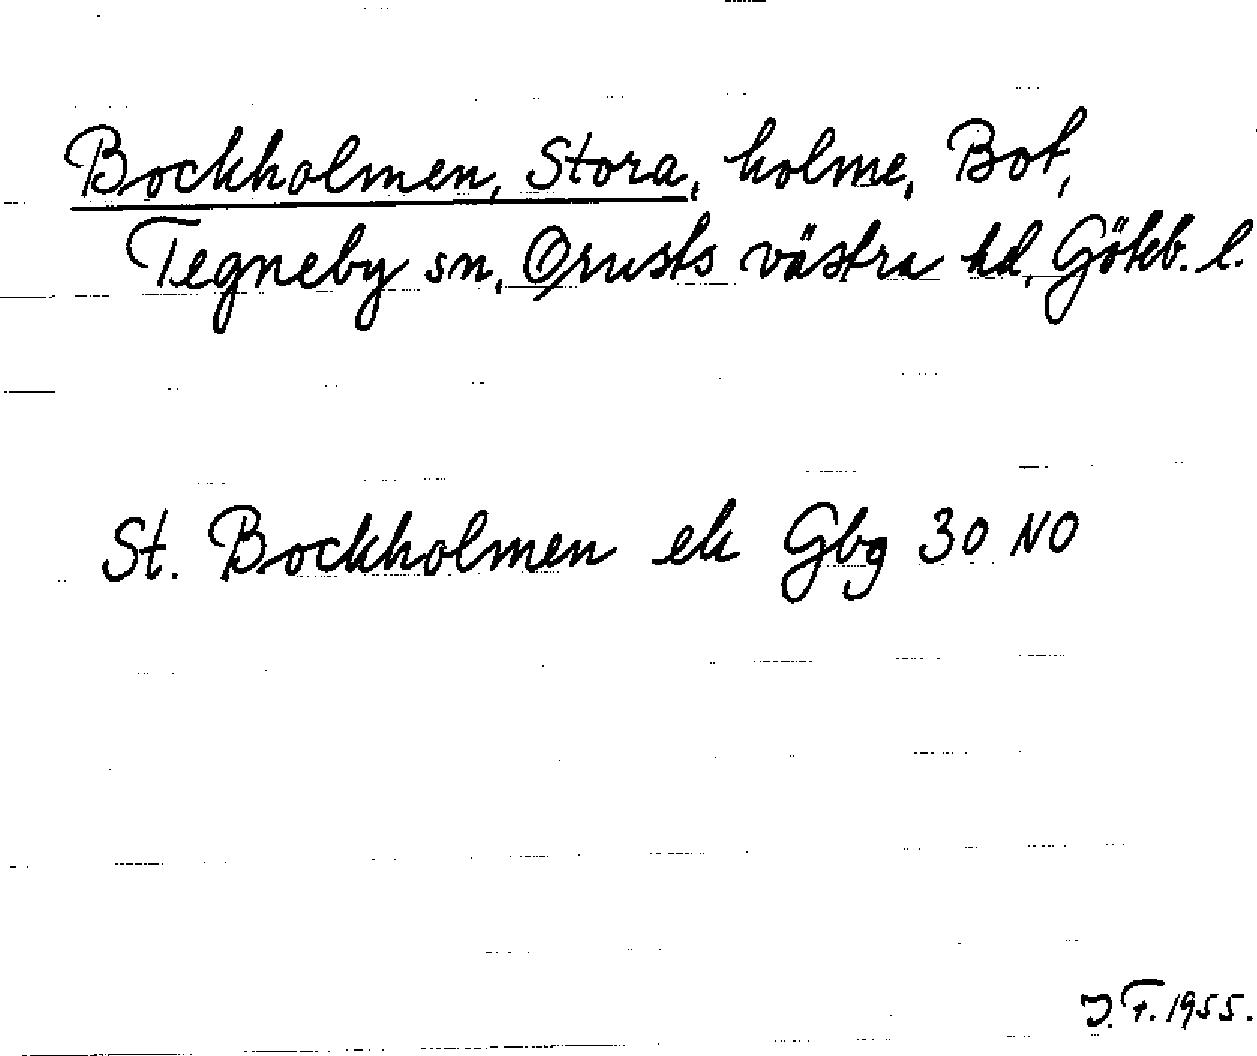 Bockholmen, Stora, holme, Bot,
Tegneby sn, Orusts västra hd, Göteb. l.
St. Bockholmen ek Gbg 30 NO
J. F. 1955.